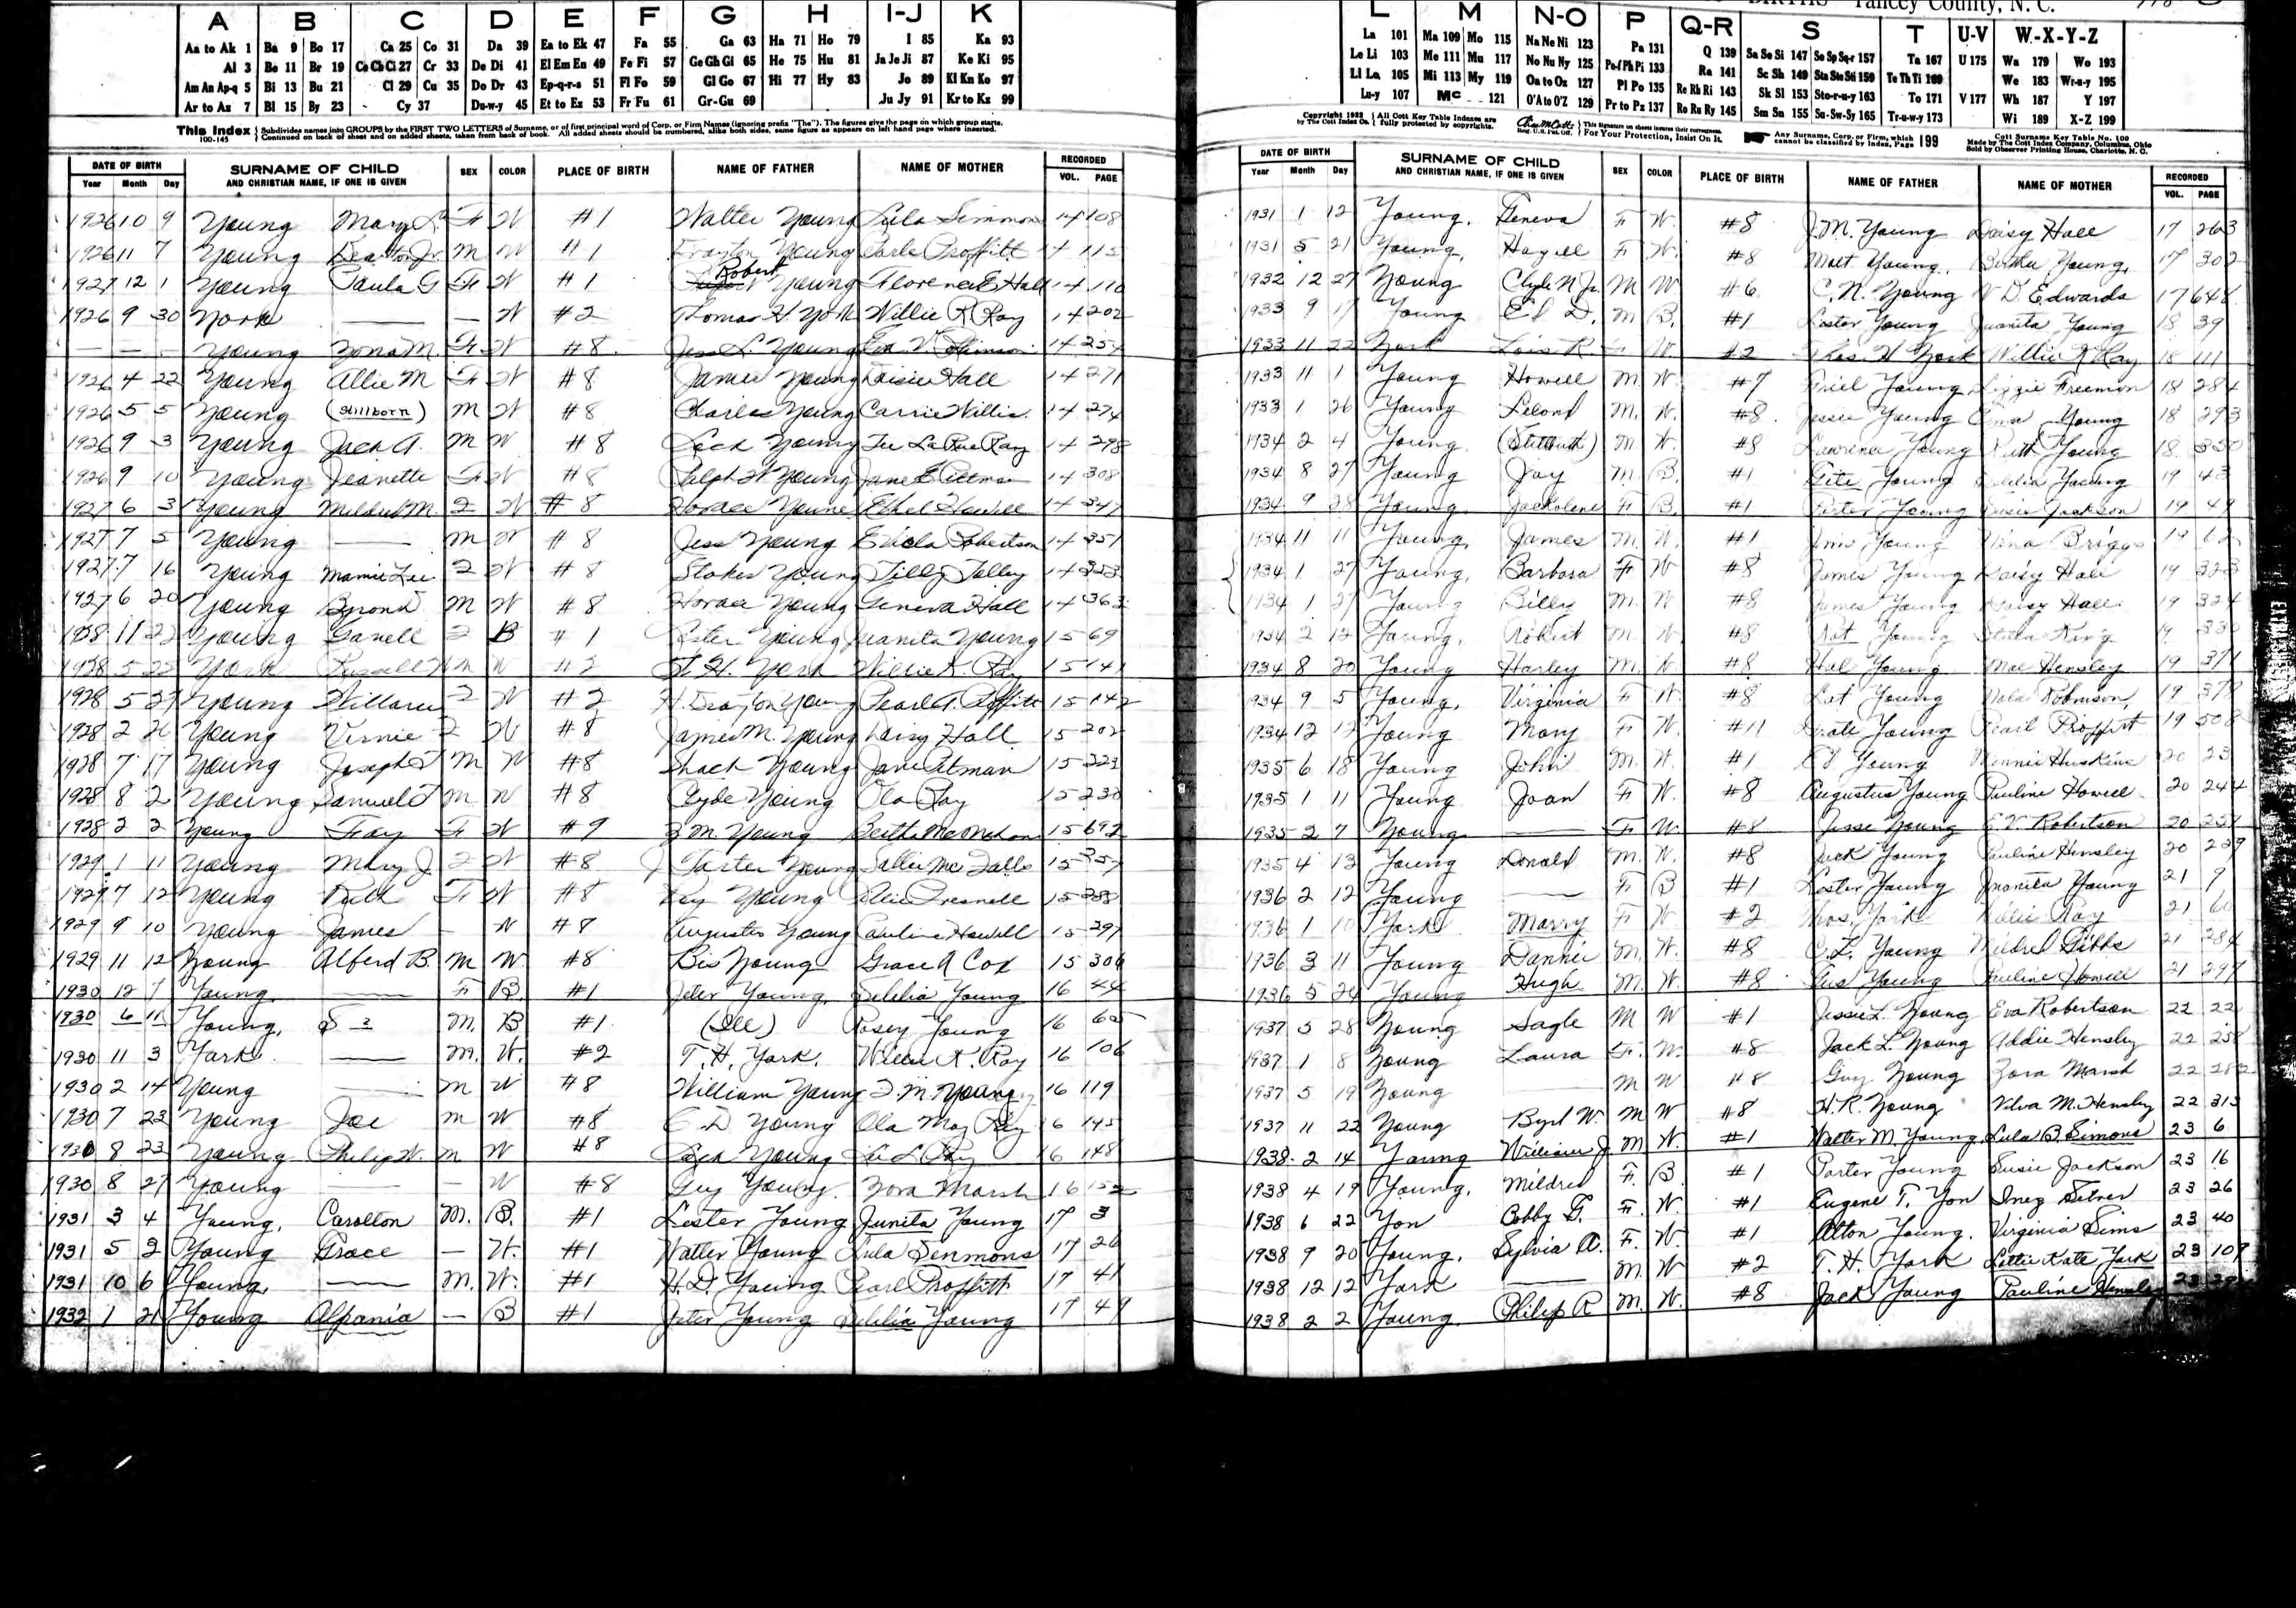 BIRTHS Yancey County, N. C.
A B C D E F G H I-J K
Aa to Ak 1 Ba 9 Bo 17 Ca 25 Co 31 Da 39 Ea to Ek 47 Fa 55 Ga 63 Ha 71 Ho 79 I 85 Ka 93
Al 3 Be 11 Br 19 Ce Ch Ci 27 Cr 33 De Di 41 El Em En 49 Fe Fi 57 Ge Gh Gi 65 He 75 Hu 81 Ja Je Ji 87 Ke Ki 95
Am An Ap-q 5 Bi 13 Bu 21 Cl 29 Cu 35 Do Dr 43 Ep-q-r-s 51 Fl Fo 59 Gl Go 67 Hi 77 Hy 83 Jo 89 Kl Kn Ko 97
Ar to Az 7 Bl 15 By 23 Cy 37 Du-w-y 45 Et to Ez 53 Fr Fu 61 Gr-Gu 69 Ju Jy 91 Kr to Kz 99
This Index 100-145 Subdivides names into GROUPS by the FIRST TWO LETTERS of Surname, or of first principal word of Corp. or Firm Names (ignoring prefix "The"). The figures give the page on which group starts.
Continued on back of sheet and on added sheets, taken from back of book. All added sheets should be numbered, alike both sides, same figure as appears on left hand page where inserted.
DATE OF BIRTH SURNAME OF CHILD SEX COLOR PLACE OF BIRTH NAME OF FATHER NAME OF MOTHER RECORDED
Year Month Day AND CHRISTIAN NAME, IF ONE IS GIVEN VOL. PAGE
1926 10 9 Young Mary L F W #1 Walter Young Lula Simmons 14 108
1926 11 7 Young Drayton Jr. M W #1 Drayton Young Proffitt 14 115
1927 12 1 Young Paula G F W #1 Robert Young Florence E Hall 14 116
1926 9 30 York — — W #2 Thomas H. York Willie K Ray 14 202
— — — Young Zona M. F W #8 Jess L. Young Eva V. 14 257
1926 4 22 Young Allie M F W #8 James Young Daisie Hall 14 271
1926 5 5 Young (Stillborn) M W #8 Charles Young Carrie Willis 14 274
1926 9 3 Young Jack A. M W #8 Zeck Young Lee La Rue Ray 14 298
1926 9 10 Young Jeanette F W #8 Ralph W Young Jane E Pitman 14 308
1927 6 3 Young Mildred M. F W #8 Horace Young Ethel Howell 14 347
1927 7 5 Young — M W #8 Jess Young Robertson 14 351
1927 7 16 Young Mamie Lee F W #8 Stokes Young Tilly Tolley 14 353
1927 6 20 Young Byron D M W #8 Horace Young Geneva Hall 14 363
1928 11 23 Young Ganell F B #1 Lester Young Juanita Young 15 69
1928 5 22 York Russell W M W #2 T. H. York Willie K. Ray 15 141
1928 5 27 Young Willard F W #2 H. Drayton Young Pearl A. Proffitt 15 142
1928 2 26 Young Vernie F W #8 James M. Young Daisy Hall 15 202
1928 7 17 Young Joseph T M W #8 Shack Young Jane Pitman 15 223
1928 8 2 Young Samuel T M W #8 Clyde Young Ola Ray 15 238
1928 2 2 Young Fray F W #9 Z. M. Young Bertha McMahon 15 692
1929 1 11 Young Mary J. F W #8 J Tarter Young Sallie McFalls 15 257
1929 7 12 Young Ruth F W #8 Rey Young Ollie Presnell 15 288
1929 9 10 Young James — W #8 Augustus Young Pauline Howell 15 297
1929 11 12 Young Alferd B. M W. #8 Bis Young Grace A Cox 15 306
1930 12 7 Young — F B. #1 Jeter Young, Delilia Young 16 44
1930 6 11 Young, S ? M. B #1 (Ill) Posey Young 16 65
1930 11 3 York — M. W. #2 T. H. York. Willie K. Ray 16 106
1930 2 14 Young — M W #8 William Young I. M. Young 16 119
1930 7 23 Young Joe M W #8 C. D Young Ola May Ray 16 145
1930 8 23 Young Philip W. M W #8 Zack Young Lee L Ray 16 148
1930 8 27 Young — — W #8 Guy Young. Zora Marsh 16 152
1931 3 4 Young, Carolton M. B. #1 Lester Young Junita Young 17 3
1931 5 2 Young Grace — W. #1 Walter Young Lula Senmons 17 26
1931 10 6 Young, — M. W. #1 H. D. Young Pearl Proffitt 17 41
1932 1 21 Young Alpania — B #1 Jeter Young Delilia Young 17 49
L M N-O P Q-R S T U-V W-X-Y-Z
La 101 Ma 109 Mo 115 Na Ne Ni 123 Pa 131 Q 139 Sa Se Si 147 So Sp Sq-r 157 Ta 167 U 175 Wa 179 Wo 193
Le Li 103 Me 111 Mu 117 No Nu Ny 125 Pe-f Ph Pi 133 Ra 141 Sc Sh 149 Sta Ste Sti 159 Te Th Ti 169 We 183 Wr-u-y 195
Ll Lo 105 Mi 113 My 119 Oa to Oz 127 Pl Po 135 Re Rh Ri 143 Sk Sl 153 Sto-r-u-y 163 To 171 V 177 Wh 187 Y 197
Lu-y 107 Mc 121 O'A to O'Z 129 Pr to Pz 137 Ro Ru Ry 145 Sm Sn 155 Su-Sw-Sy 165 Tr-u-w-y 173 Wi 189 X-Z 199
Copyright 1932 by The Cott Index Co. All Cott Key Table Indexes are Fully protected by copyrights. Reg. U.S. Pat. Off. This signature on sheets insures their correctness. For Your Protection, Insist On It. Any Surname, Corp. or Firm, which cannot be classified by Index, Page 199 Cott Surname Key Table No. 100
Made by The Cott Index Company, Columbus, Ohio
Sold by Observer Printing House, Charlotte, N. C.
DATE OF BIRTH SURNAME OF CHILD SEX COLOR PLACE OF BIRTH NAME OF FATHER NAME OF MOTHER RECORDED
Year Month Day AND CHRISTIAN NAME, IF ONE IS GIVEN VOL. PAGE
1931 1 12 Young, Geneva F W. #8 J. M. Young Daisy Hall 17 263
1931 5 21 Young, Hazel F W. #8 Matt Young, Bertha Young, 17 302
1932 12 27 Young Clyde N Jr. M W #6 C. N. Young V D. Edwards 17 648
1933 9 17 Young El D. M B. #1 Lester Young Juanita Young 18 39
1933 11 22 York Lois K. F W. #2 Thos. H York Willie K Ray 18 111
1933 11 1 Young Howell M. W. #7 Young Lizzie Freeman 18 284
1933 1 26 Young Lelond M. W. #8 Jessie Young Young 18 293
1934 2 4 Young M W. #8 Lawrence Young Ruth Young 18 350
1934 8 27 Young Jay M B. #1 Young Delilia Young 19 43
1934 9 28 Young Jackolene F B. #1 Porter Young Susie Jackson 19 49
1934 11 11 Young, James M W. #1 Jim Young Briggs 19 62
1934 1 27 Young, Barbara F W #8 James Young Daisy Hall 19 323
1934 1 27 Young Billy M. W #8 James Young Daisy Hall 19 324
1934 2 12 Young, Robert M W #8 Young Stella King 19 330
1934 8 20 Young Harley M. W. #8 Hal Young Mae Hensley 19 371
1934 9 5 Young, Virginia F W. #8 Young Robinson, 19 378
1934 12 12 Young Mary F W. #11 Young Pearl Proffitt 19 508
1935 6 18 Young John M. W. #1 Young Minnie Huskins 20 23
1935 1 11 Young Joan F W. #8 Augustus Young Pauline Howell 20 244
1935 2 7 Young — F W. #8 Jesse Young E. V. Robertson 20 251
1935 4 13 Young Donald M. W. #8 Jack Young Pauline Hensley 20 259
1936 2 12 Young — F B #1 Lester Young Juanita Young 21 9
1936 1 10 York Marry F W #2 Thos. York Willie Ray 21 60
1936 3 11 Young Dannie M. W. #8 C. L. Young Mildred Gibbs 21 284
1936 5 24 Young Hugh. M. W. #8 Gus Young Pauline Howell 21 297
1937 5 28 Young Sagle M W #1 Jessie L. Young Eva Robertson 22 22
1937 1 8 Young Laura F. W. #8 Jack L. Young Addie Hensley 22 258
1937 5 19 Young — M W #8 Guy Young Zora Marsh 22 282
1937 11 22 Young Byrd W. M W #8 H. R. Young Velva M. Hensley 22 315
1938 2 14 Young William J M W. #1 Walter M. Young Lula B. Simons 23 6
1938 4 19 Young, Mildred F. B. #1 Porter Young Susie Jackson 23 16
1938 6 22 Yon Bobby G. F. W. #1 Eugene T. Yon Inez Silver 23 26
1938 9 20 Young, Sylvia A. F. W #1 Alton Young. Virginia Sims 23 40
1938 12 12 York — M. W #2 T. H. York Lettie Kate York 23 109
1938 2 2 Young Philip R M. W. #8 Jack Young Pauline Hensley 23